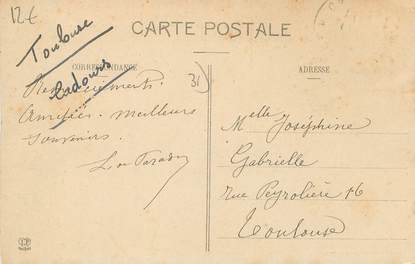 12€
CARTE POSTALE
Toulouse
Cadours
CORRESPONDANCE
ADRESSE
31
Remerciements.
Amitiés. meilleurs
souvenirs.
Melle Joséphine
Gabrielle
rue Peyrolière 16
Toulouse